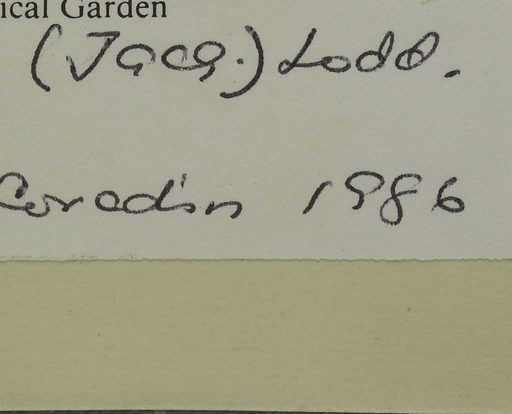 ical Garden
(Jacq.) Lodd.
Coradin 1986